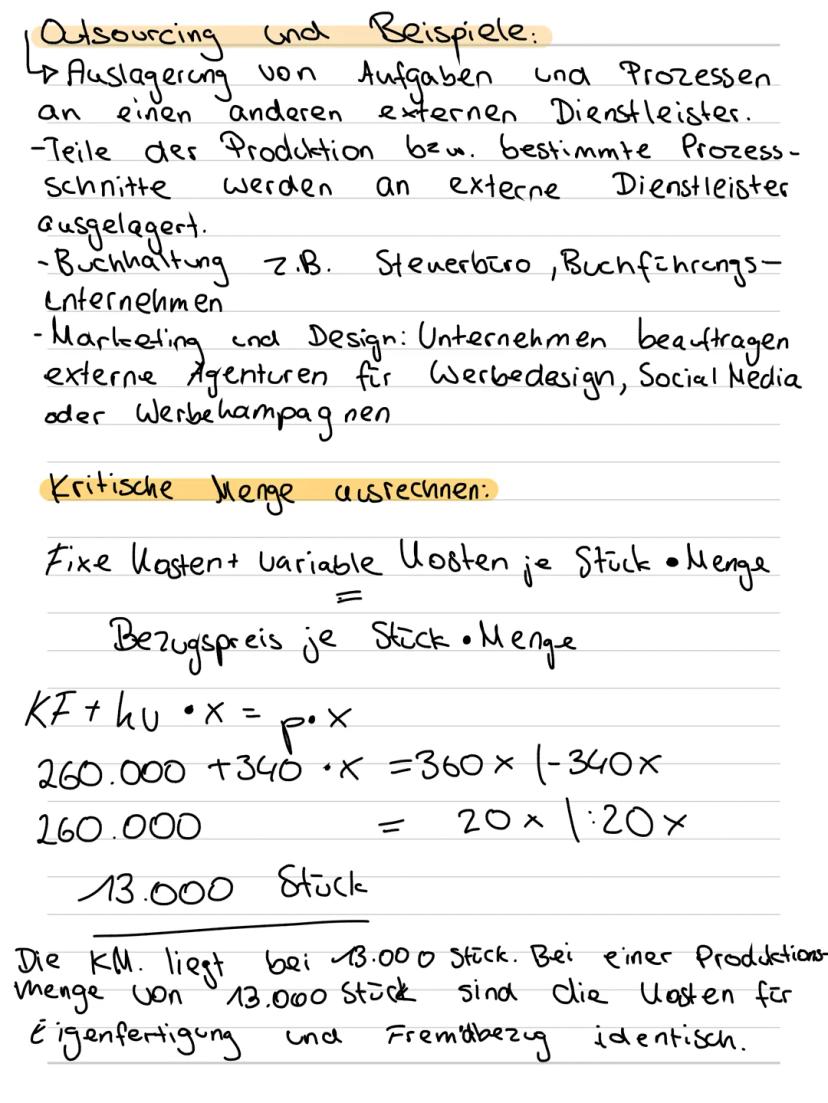 Outsourcing und Beispiele:
↳ Auslagerung von Aufgaben und Prozessen
an einen anderen externen Dienstleister.
-Teile der Produktion bzw. bestimmte Prozess-
schnitte werden an externe Dienstleister
ausgelagert.
-Buchhaltung z.B. Steuerbüro, Buchführungs-
unternehmen
-Marketing und Design: Unternehmen beauftragen
externe Agenturen für Werbedesign, Social Media
oder Werbekampagnen
Kritische Menge ausrechnen:
Fixe Kosten + variable Kosten je Stück • Menge
=
Bezugspreis je Stück • Menge
KF + kv • x = p • x
260.000 + 340 • x = 360x |-340x
260.000 = 20x |:20x
13.000 Stück
Die KM. liegt bei 13.000 Stück. Bei einer Produktions-
menge von 13.000 Stück sind die Kosten für
Eigenfertigung und Fremdbezug identisch.